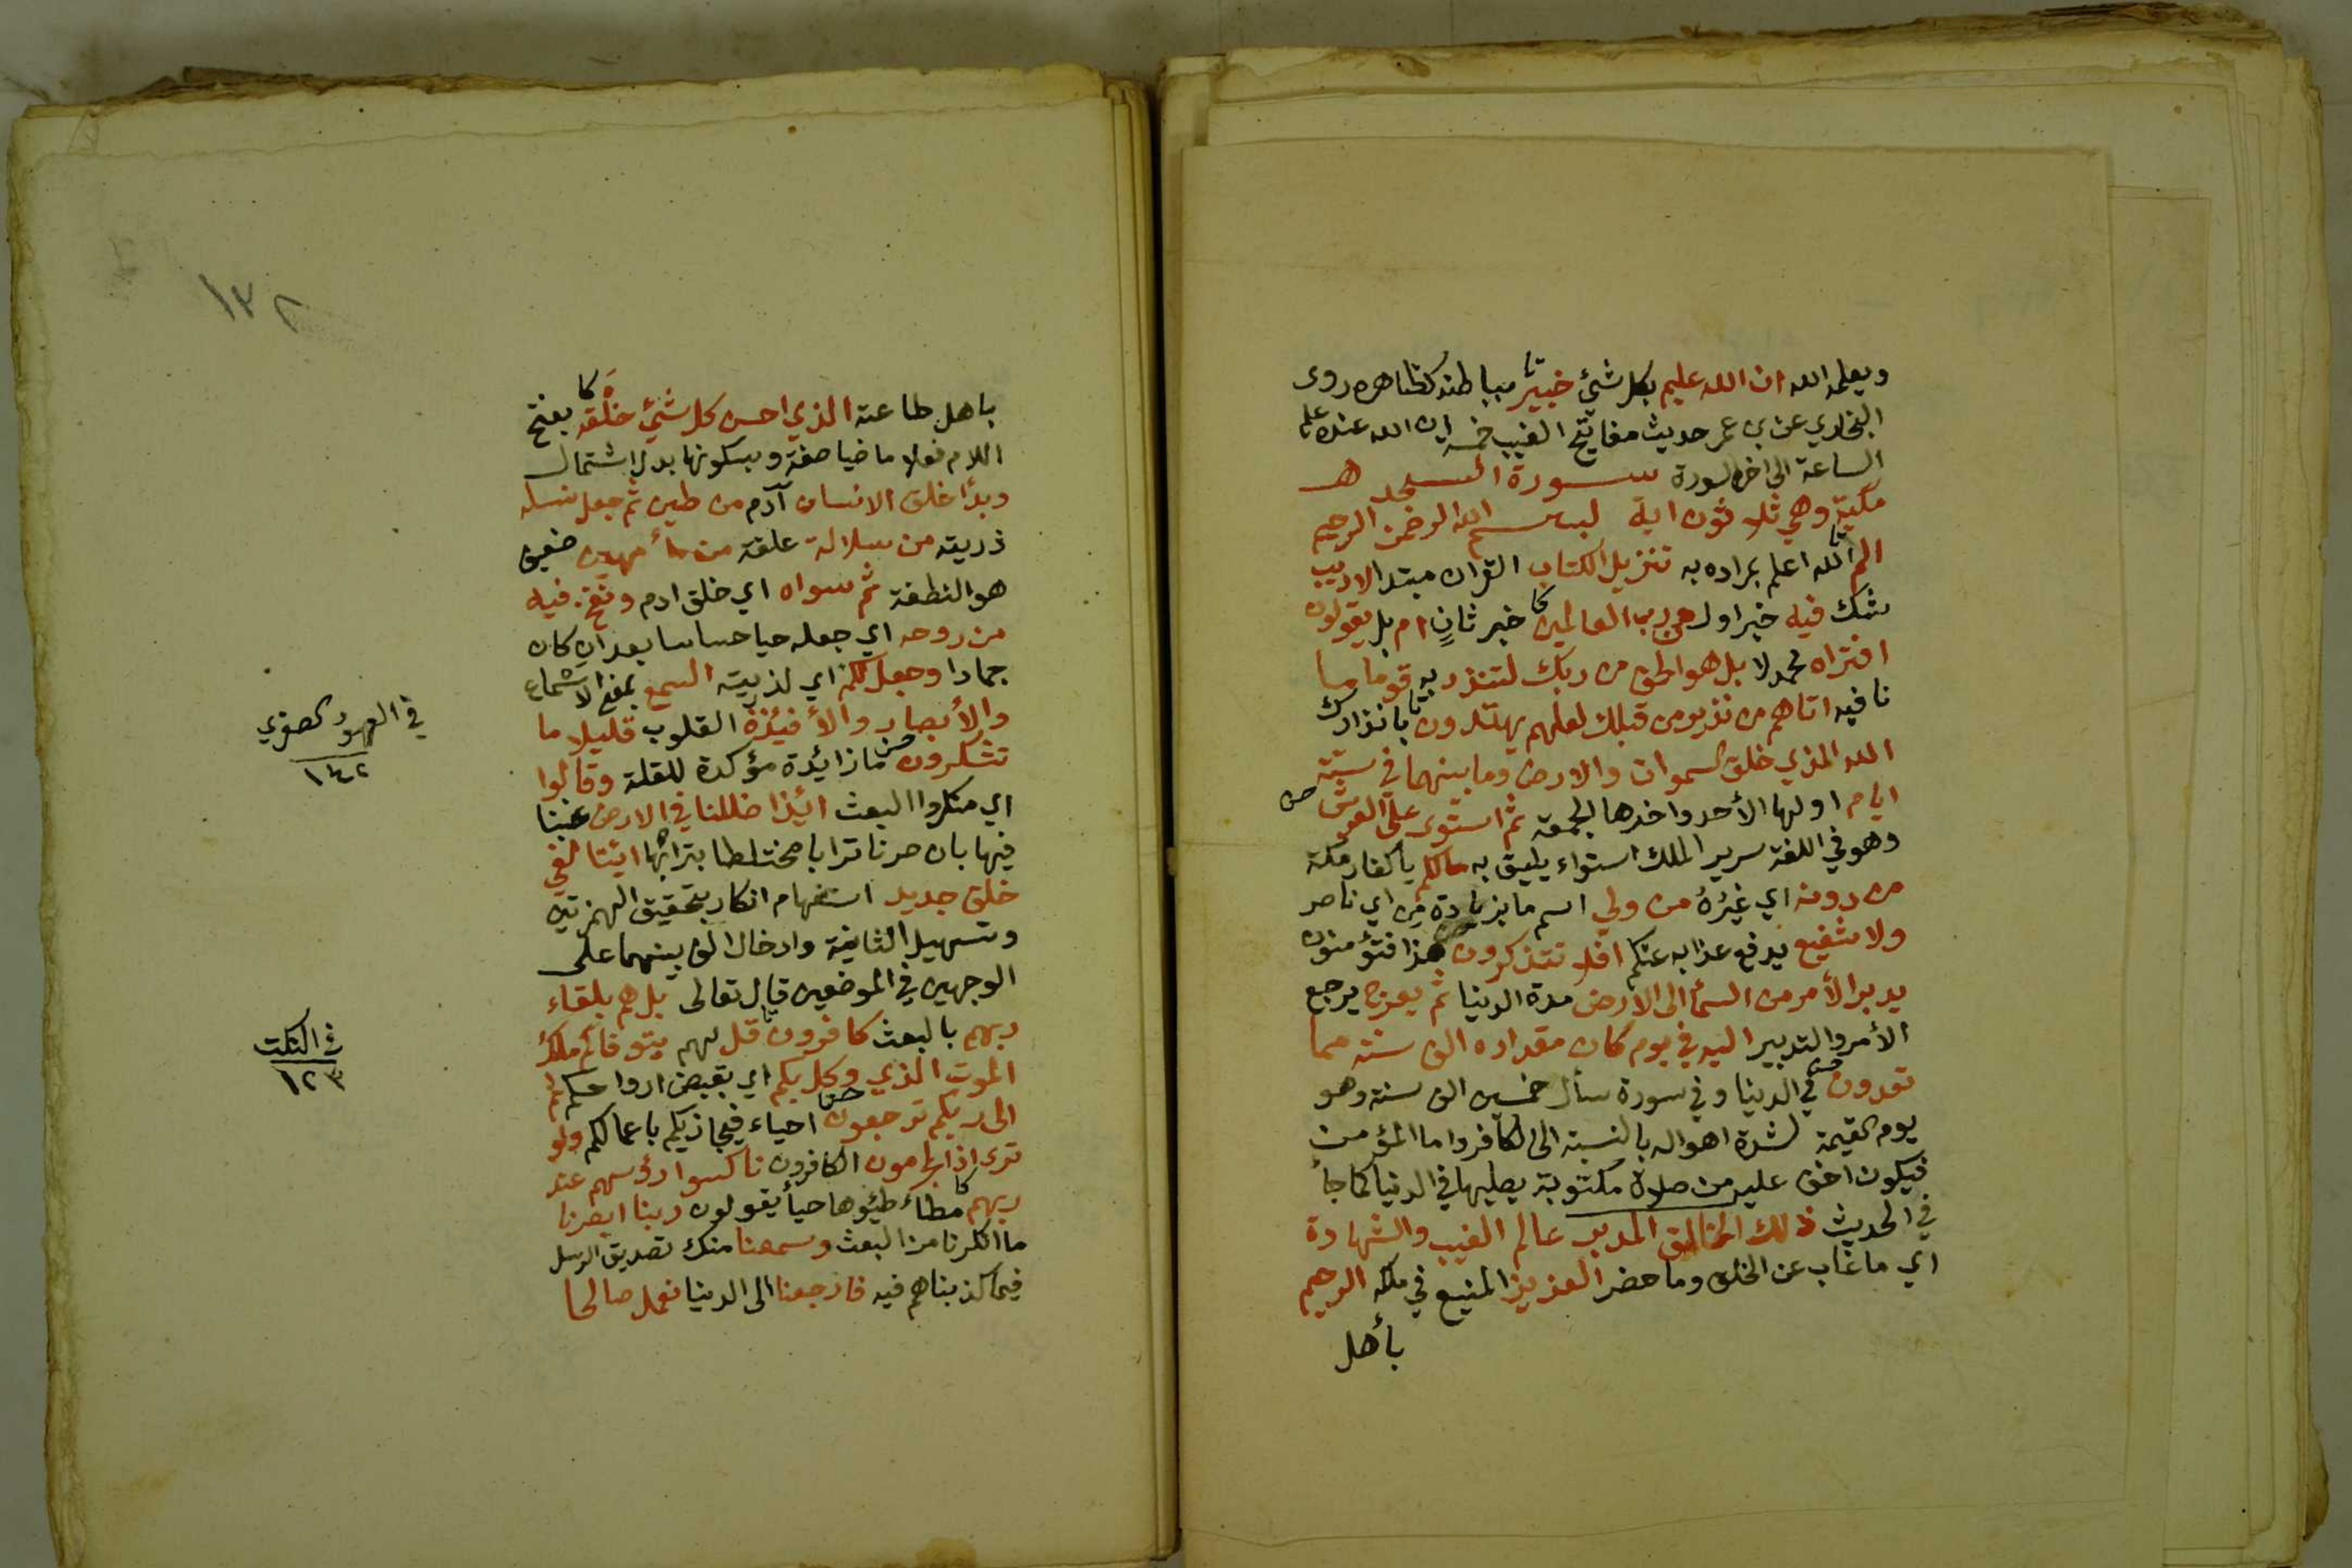 ويعلمه الله ان الله عليم بكل شيئ خبير بباطنه كظاهره روى
البخاري عن بن عمر حديث مفاتيح الغيب خمسة ان الله عنده علم
الساعة الى اخر السورة سورة السجده
مكية وهي ثلاثون اية بسم الله الرحمن الرحيم
الم الله اعلم بمراده به تنزيل الكتاب القران مبتدا لا ريب
شك فيه خبر اول من رب العالمين خبر ثانٍ ام بل يقولون
افتراه محمد لا بل هو الحق من ربك لتنذر به قوما ما
نافيه اتاهم من نذير من قبلك لعلهم يهتدون بانذارك
الله الذي خلق السموات والارض وما بينهما في ستة
ايام اولها الأحد واخرها الجمعة ثم استوى على العرش
وهو في اللغة سرير الملك استواء يليق به مالكم يا كفار مكة
من دونه اي غيرُه من ولي اسم ما بزيادة مِن اي ناصر
ولا شفيع يدفع عذابه عنكم افلا تتذكرون هذا فتؤمنون
يدبر الأمر من السمأ الى الارض مدة الدنيا ثم يعرج يرجع
الأمر والتدبير اليه في يوم كان مقداره الف سنة مما
تعدون في الدنيا وفي سورة سأل خمسين الف سنة وهو
يوم القيمة لشدة اهواله بالنسبة الى الكافر واما المؤمن
فيكون اخف عليه من صلاة مكتوبة يصليها في الدنيا كما جأ
في الحديث ذلك الخالق المدبر عالم الغيب والشهادة
اي ما غاب عن الخلق وما حضر العزيز المنيع في ملكه الرحيم
بأهل
١٣٨
باهل طاعته الذي احسن كل شيئ خلقَه بفتح
اللام فعلا ماضيا صفة وبسكونها بدل اشتمال
وبدأ خلق الانسان آدم من طين ثم جعل نسله
ذريته من سلالة علقة من مأ مهين ضعيف
هو النطفة ثم سواه اي خلق ادم ونفخ فيه
من روحه اي جعله حيا حساسا بعد ان كان
جمادا وجعل لكم اي لذريته السمع بمعنى الاسماع
والأبصار والأفئدة القلوب قليلا ما
تشكرون ما زائدة مؤكدة للقلة وقالوا
اي منكروا البعث ائذا ضللنا في الارض غبنا
فيها بان صرنا ترابا مختلطا بترابها ائنا لفي
خلق جديد استفهام انكار بتحقيق الهمزتين
وتسهيل الثانية وادخال الف بينهما على
الوجهين في الموضعين قال تعالى بل هم بلقاء
ربهم بالبعث كافرون قل لهم يتوفاكم ملك
الموت الذي وكل بكم اي بقبض ارواحكم ثم
الى ربكم ترجعون احياء فيجازيكم باعمالكم ولو
ترى اذ المجرمون الكافرون ناكسوا رؤسهم عند
ربهم مطاء طئوها حيأ يقولون ربنا ابصرنا
ما انكرنا من البعث وسمعنا منك تصديق الرسل
فيما كذبناهم فيه فارجعنا الى الدنيا نعمل صالحا
في العهود الصغري
١٤٢
في النكت
١٢٣